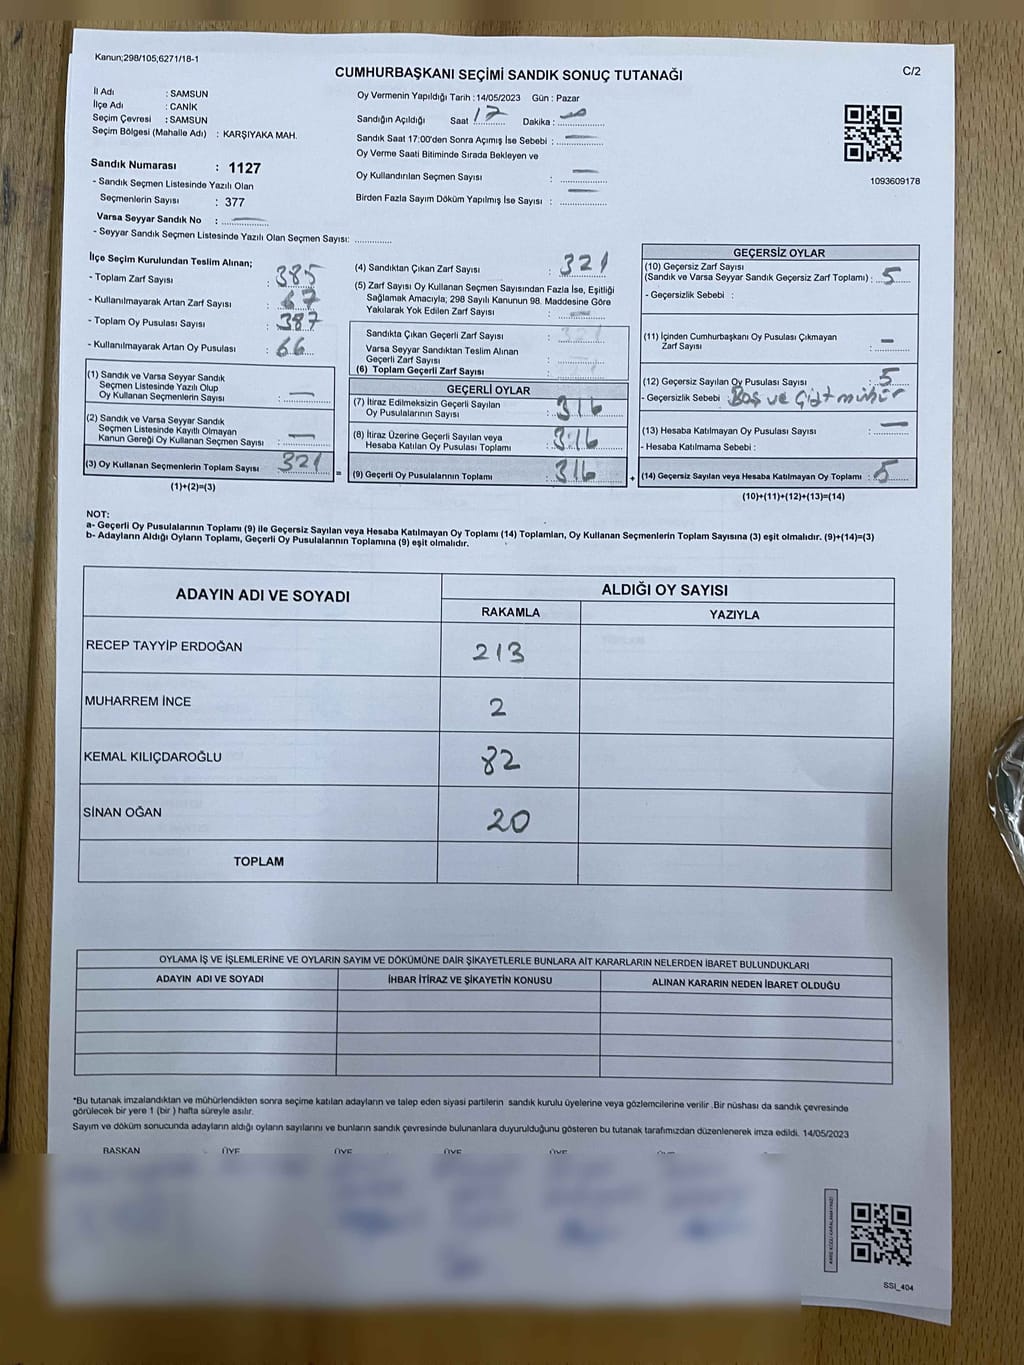 Kanun;298/105;6271/18-1
CUMHURBAŞKANI SEÇİMİ SANDIK SONUÇ TUTANAĞI
C/2
İl Adı : SAMSUN
İlçe Adı : CANİK
Seçim Çevresi : SAMSUN
Seçim Bölgesi (Mahalle Adı) : KARŞIYAKA MAH.
Sandık Numarası : 1127
- Sandık Seçmen Listesinde Yazılı Olan
Seçmenlerin Sayısı : 377
Varsa Seyyar Sandık No :
- Seyyar Sandık Seçmen Listesinde Yazılı Olan Seçmen Sayısı:
Oy Vermenin Yapıldığı Tarih :14/05/2023 Gün : Pazar
Sandığın Açıldığı Saat 17 Dakika :
Sandık Saat 17:00'den Sonra Açımış İse Sebebi :
Oy Verme Saati Bitiminde Sırada Bekleyen ve
Oy Kullandırılan Seçmen Sayısı :
Birden Fazla Sayım Döküm Yapılmış İse Sayısı :
1093609178
İlçe Seçim Kurulundan Teslim Alınan;
- Toplam Zarf Sayısı : 385
- Kullanılmayarak Artan Zarf Sayısı : 67
- Toplam Oy Pusulası Sayısı : 387
- Kullanılmayarak Artan Oy Pusulası : 66
(1) Sandık ve Varsa Seyyar Sandık
Seçmen Listesinde Yazılı Olup
Oy Kullanan Seçmenlerin Sayısı : —
(2) Sandık ve Varsa Seyyar Sandık
Seçmen Listesinde Kayıtlı Olmayan
Kanun Gereği Oy Kullanan Seçmen Sayısı : —
(3) Oy Kullanan Seçmenlerin Toplam Sayısı : 321
(1)+(2)=(3)
(4) Sandıktan Çıkan Zarf Sayısı : 321
(5) Zarf Sayısı Oy Kullanan Seçmen Sayısından Fazla İse, Eşitliği
Sağlamak Amacıyla; 298 Sayılı Kanunun 98. Maddesine Göre
Yakılarak Yok Edilen Zarf Sayısı : —
Sandıkta Çıkan Geçerli Zarf Sayısı :
Varsa Seyyar Sandıktan Teslim Alınan
Geçerli Zarf Sayısı :
(6) Toplam Geçerli Zarf Sayısı
GEÇERLİ OYLAR
(7) İtiraz Edilmeksizin Geçerli Sayılan
Oy Pusulalarının Sayısı : 316
(8) İtiraz Üzerine Geçerli Sayılan veya
Hesaba Katılan Oy Pusulası Toplamı : 316
= (9) Geçerli Oy Pusulalarının Toplamı : 316
GEÇERSİZ OYLAR
(10) Geçersiz Zarf Sayısı
(Sandık ve Varsa Seyyar Sandık Geçersiz Zarf Toplamı) : 5
- Geçersizlik Sebebi :
(11) İçinden Cumhurbaşkanı Oy Pusulası Çıkmayan
Zarf Sayısı : —
(12) Geçersiz Sayılan Oy Pusulası Sayısı : 5
- Geçersizlik Sebebi : Boş ve Çift mühür
(13) Hesaba Katılmayan Oy Pusulası Sayısı : —
- Hesaba Katılmama Sebebi :
+ (14) Geçersiz Sayılan veya Hesaba Katılmayan Oy Toplamı : 5
(10)+(11)+(12)+(13)=(14)
NOT:
a- Geçerli Oy Pusulalarının Toplamı (9) ile Geçersiz Sayılan veya Hesaba Katılmayan Oy Toplamı (14) Toplamları, Oy Kullanan Seçmenlerin Toplam Sayısına (3) eşit olmalıdır. (9)+(14)=(3)
b- Adayların Aldığı Oyların Toplamı, Geçerli Oy Pusulalarının Toplamına (9) eşit olmalıdır.
ADAYIN ADI VE SOYADI
ALDIĞI OY SAYISI
RAKAMLA YAZIYLA
RECEP TAYYİP ERDOĞAN 213
MUHARREM İNCE 2
KEMAL KILIÇDAROĞLU 82
SİNAN OĞAN 20
TOPLAM
OYLAMA İŞ VE İŞLEMLERİNE VE OYLARIN SAYIM VE DÖKÜMÜNE DAİR ŞİKAYETLERLE BUNLARA AİT KARARLARIN NELERDEN İBARET BULUNDUKLARI
ADAYIN ADI VE SOYADI İHBAR İTİRAZ VE ŞİKAYETİN KONUSU ALINAN KARARIN NEDEN İBARET OLDUĞU
*Bu tutanak imzalandıktan ve mühürlendikten sonra seçime katılan adayların ve talep eden siyasi partilerin sandık kurulu üyelerine veya gözlemcilerine verilir .Bir nüshası da sandık çevresinde
görülecek bir yere 1 (bir ) hafta süreyle asılır.
Sayım ve döküm sonucunda adayların aldığı oyların sayılarını ve bunların sandık çevresinde bulunanlara duyurulduğunu gösteren bu tutanak tarafımızdan düzenlenerek imza edildi. 14/05/2023
BAŞKAN ÜYE ÜYE ÜYE ÜYE
SSI_404